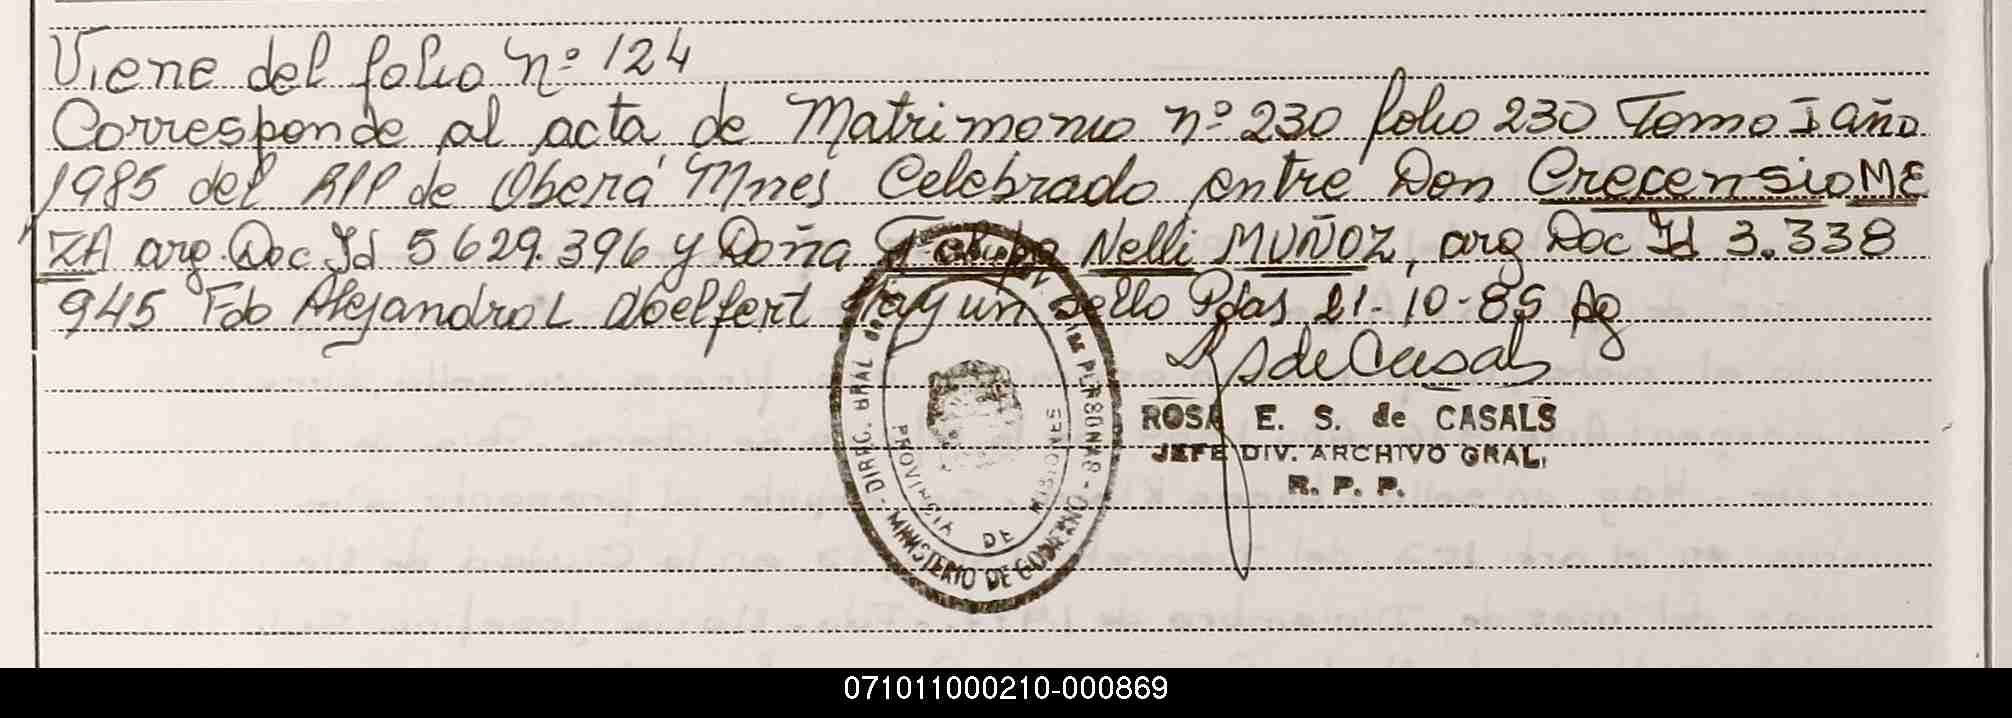 Viene del folio nº 124
Corresponde al acta de Matrimonio nº 230 folio 230 Tomo I año
1985 del RPP de Oberá Mnes Celebrado entre Don Crecensio ME
ZA arg. Doc Id 5629.396 y Doña Felipa Nelli MUÑOZ, arg Doc Id 3.338
945 Fdo Alejandro L Hay un sello Pdas 21-10-85
RSdeCasals
ROSA E. S. de CASALS
JEFE DIV. ARCHIVO GRAL.
R. P. P.
DIREC. GRAL DE PERSONAS - MINISTERIO DE GOBIERNO -
PROVINCIA DE MISIONES
071011000210-000869